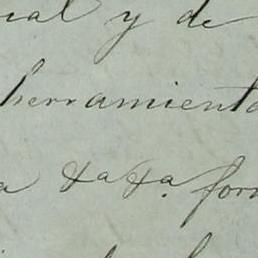 ial y de
herramienta
a &a &a. for